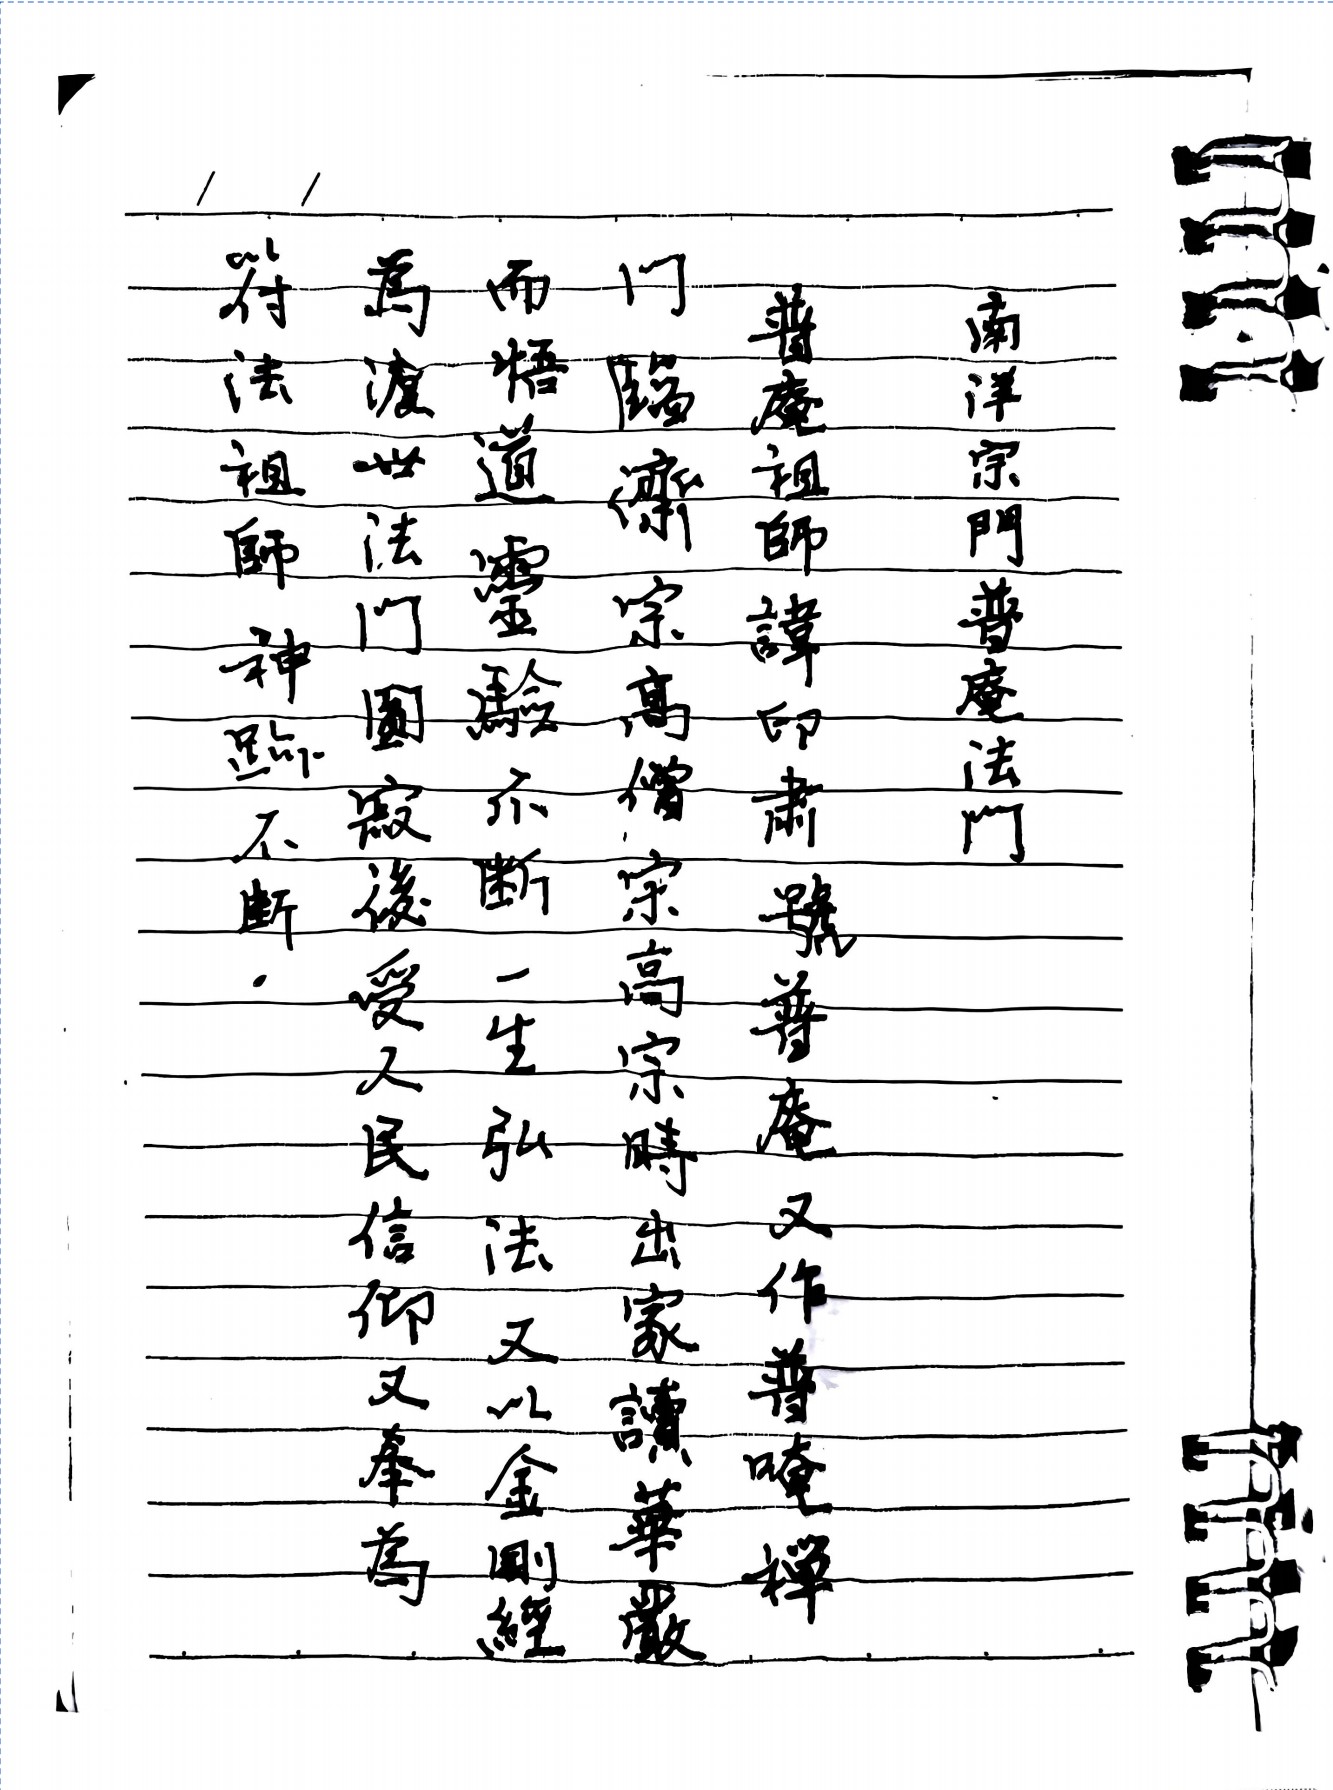 南洋宗門普庵法門
普庵祖師諱印肅號普庵又作普唵禪
門臨濟宗高僧宗高宗時出家讀華嚴
而悟道靈驗不斷一生弘法又以金剛經
為渡世法門圓寂後受人民信仰又奉為
符法祖師神跡不斷.